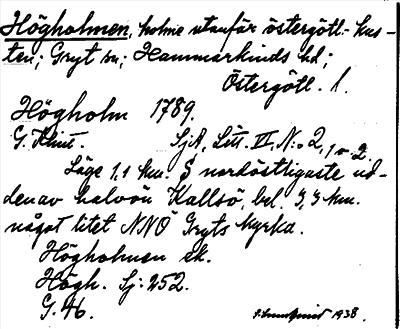 Högholmen, holme utanför östergötl. kus-
ten; Gryt sn; Hammarkinds hd;
Östergötl. l.
Högholm 1789.
G. Klint. SjA, Litt. II, N:o 2, 1 o 2.
Läge 1,1 km. S nordöstligaste ud-
den av halvön Kallsö, bel. 3,3 km.
något litet NNO Gryts kyrka.
Högholmen ek.
Högh. Sj: 252.
G. 46.
1938.